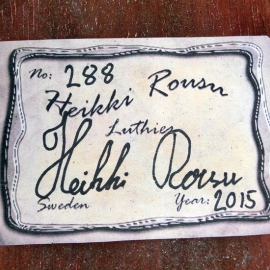 No: 288
Heikki Rousu
Luthier
Heikki Rousu
Sweden Year: 2015